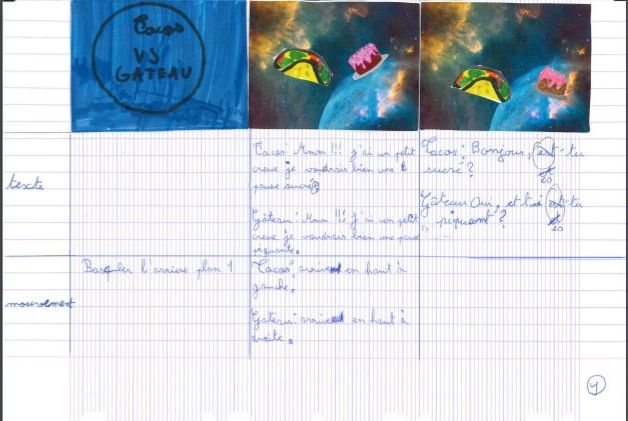 Tacos
VS
GATEAU
texte
Tacos: Mmm !!! j'ai un petit
creux je voudrais bien une
pause sucré
Gâteau: Mmm !!! J'ai un petit
creux je voudrais bien une pause
piquante.
Tacos: Bonjour, est-tu
es
sucré ?
Gâteau Oui, et toi est-tu
es
piquant ?
mouvement
Basculer l'arrière plan 1
Tacos: arrive en haut à
gauche.
Gateau: arrive en haut à
droite.
1